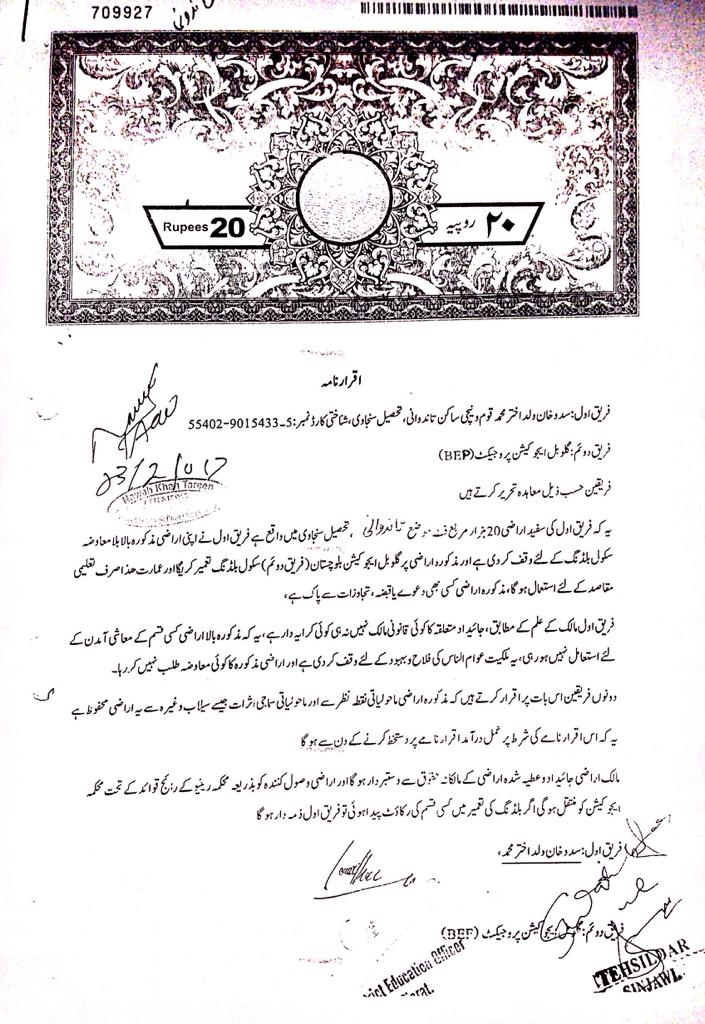 709927
Rupees 20
۲۰ روپیہ
اقرار نامہ
فریق اول: سدوخان ولد اختر محمد قوم ونیچی ساکن تاندوانی، تحصیل سنجاوی، شناختی کارڈ نمبر: 5-9015433-55402
فریق دوئم: گلوبل ایجوکیشن پروجیکٹ (BEP)
فریقین حسب ذیل معاہدہ تحریر کرتے ہیں
یہ کہ فریق اول کی سفید اراضی 20 ہزار مربع فٹ موضع تاندوانی، تحصیل سنجاوی میں واقع ہے فریق اول نے اپنی اراضی مذکورہ بالا بلا معاوضہ
سکول بلڈنگ کے لئے وقف کر دی ہے اور مذکورہ اراضی پر گلوبل ایجوکیشن بلوچستان (فریق دوئم) سکول بلڈنگ تعمیر کریگا اور عمارت ھذا صرف تعلیمی
مقاصد کے لئے استعمال ہو گا، مذکورہ اراضی کسی بھی دعوے یا قبضہ، تجاوزات سے پاک ہے،
فریق اول مالک کے علم کے مطابق، جائیداد متعلقہ کا کوئی قانونی مالک نہیں نہ ہی کوئی کرایہ دار ہے، یہ کہ مذکورہ بالا اراضی کسی قسم کے معاشی آمدن کے
لئے استعمال نہیں ہو رہی، یہ ملکیت عوام الناس کی فلاح و بہبود کے لئے وقف کر دی ہے اور اراضی مذکورہ کا کوئی معاوضہ طلب نہیں کر رہا۔
دونوں فریقین اس بات پر اقرار کرتے ہیں کہ مذکورہ اراضی ماحولیاتی نقطہ نظر سے اور ماحولیاتی سماجی اثرات جیسے سیلاب وغیرہ سے یہ اراضی محفوظ ہے
یہ کہ اس اقرار نامے کی شرط پر عمل درآمد اقرار نامے پر دستخط کرنے کے دن سے ہو گا
مالک اراضی جائیداد و عطیہ شدہ اراضی کے مالکانہ حقوق سے دستبردار ہو گا اور اراضی وصول کنندہ کو بذریعہ محکمہ ریونیو کے رائج قوائد کے تحت محکمہ
ایجوکیشن کو منتقل ہو گی اگر بلڈنگ کی تعمیر میں کسی قسم کی رکاؤٹ پیدا ہوئی تو فریق اول ذمہ دار ہو گا
فریق اول: سدوخان ولد اختر محمد،
فریق دوئم: ایجوکیشن پروجیکٹ (BEP)
Nawab Khan Tareen
Education Officer
TEHSILDAR
SINJAWI